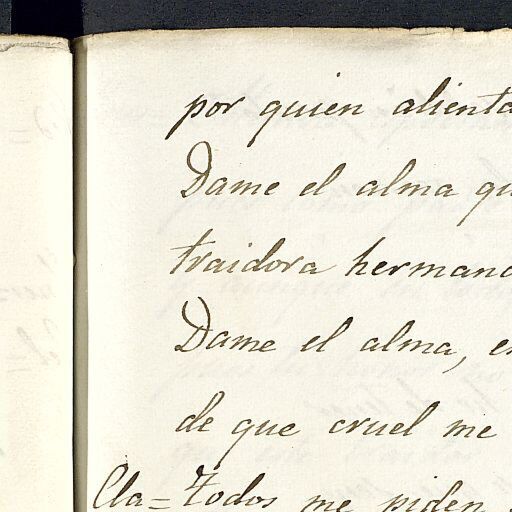 por quien alienta
Dame el alma qu
traidora hermana
Dame el alma, e
de que cruel me
Cla= Todos me piden